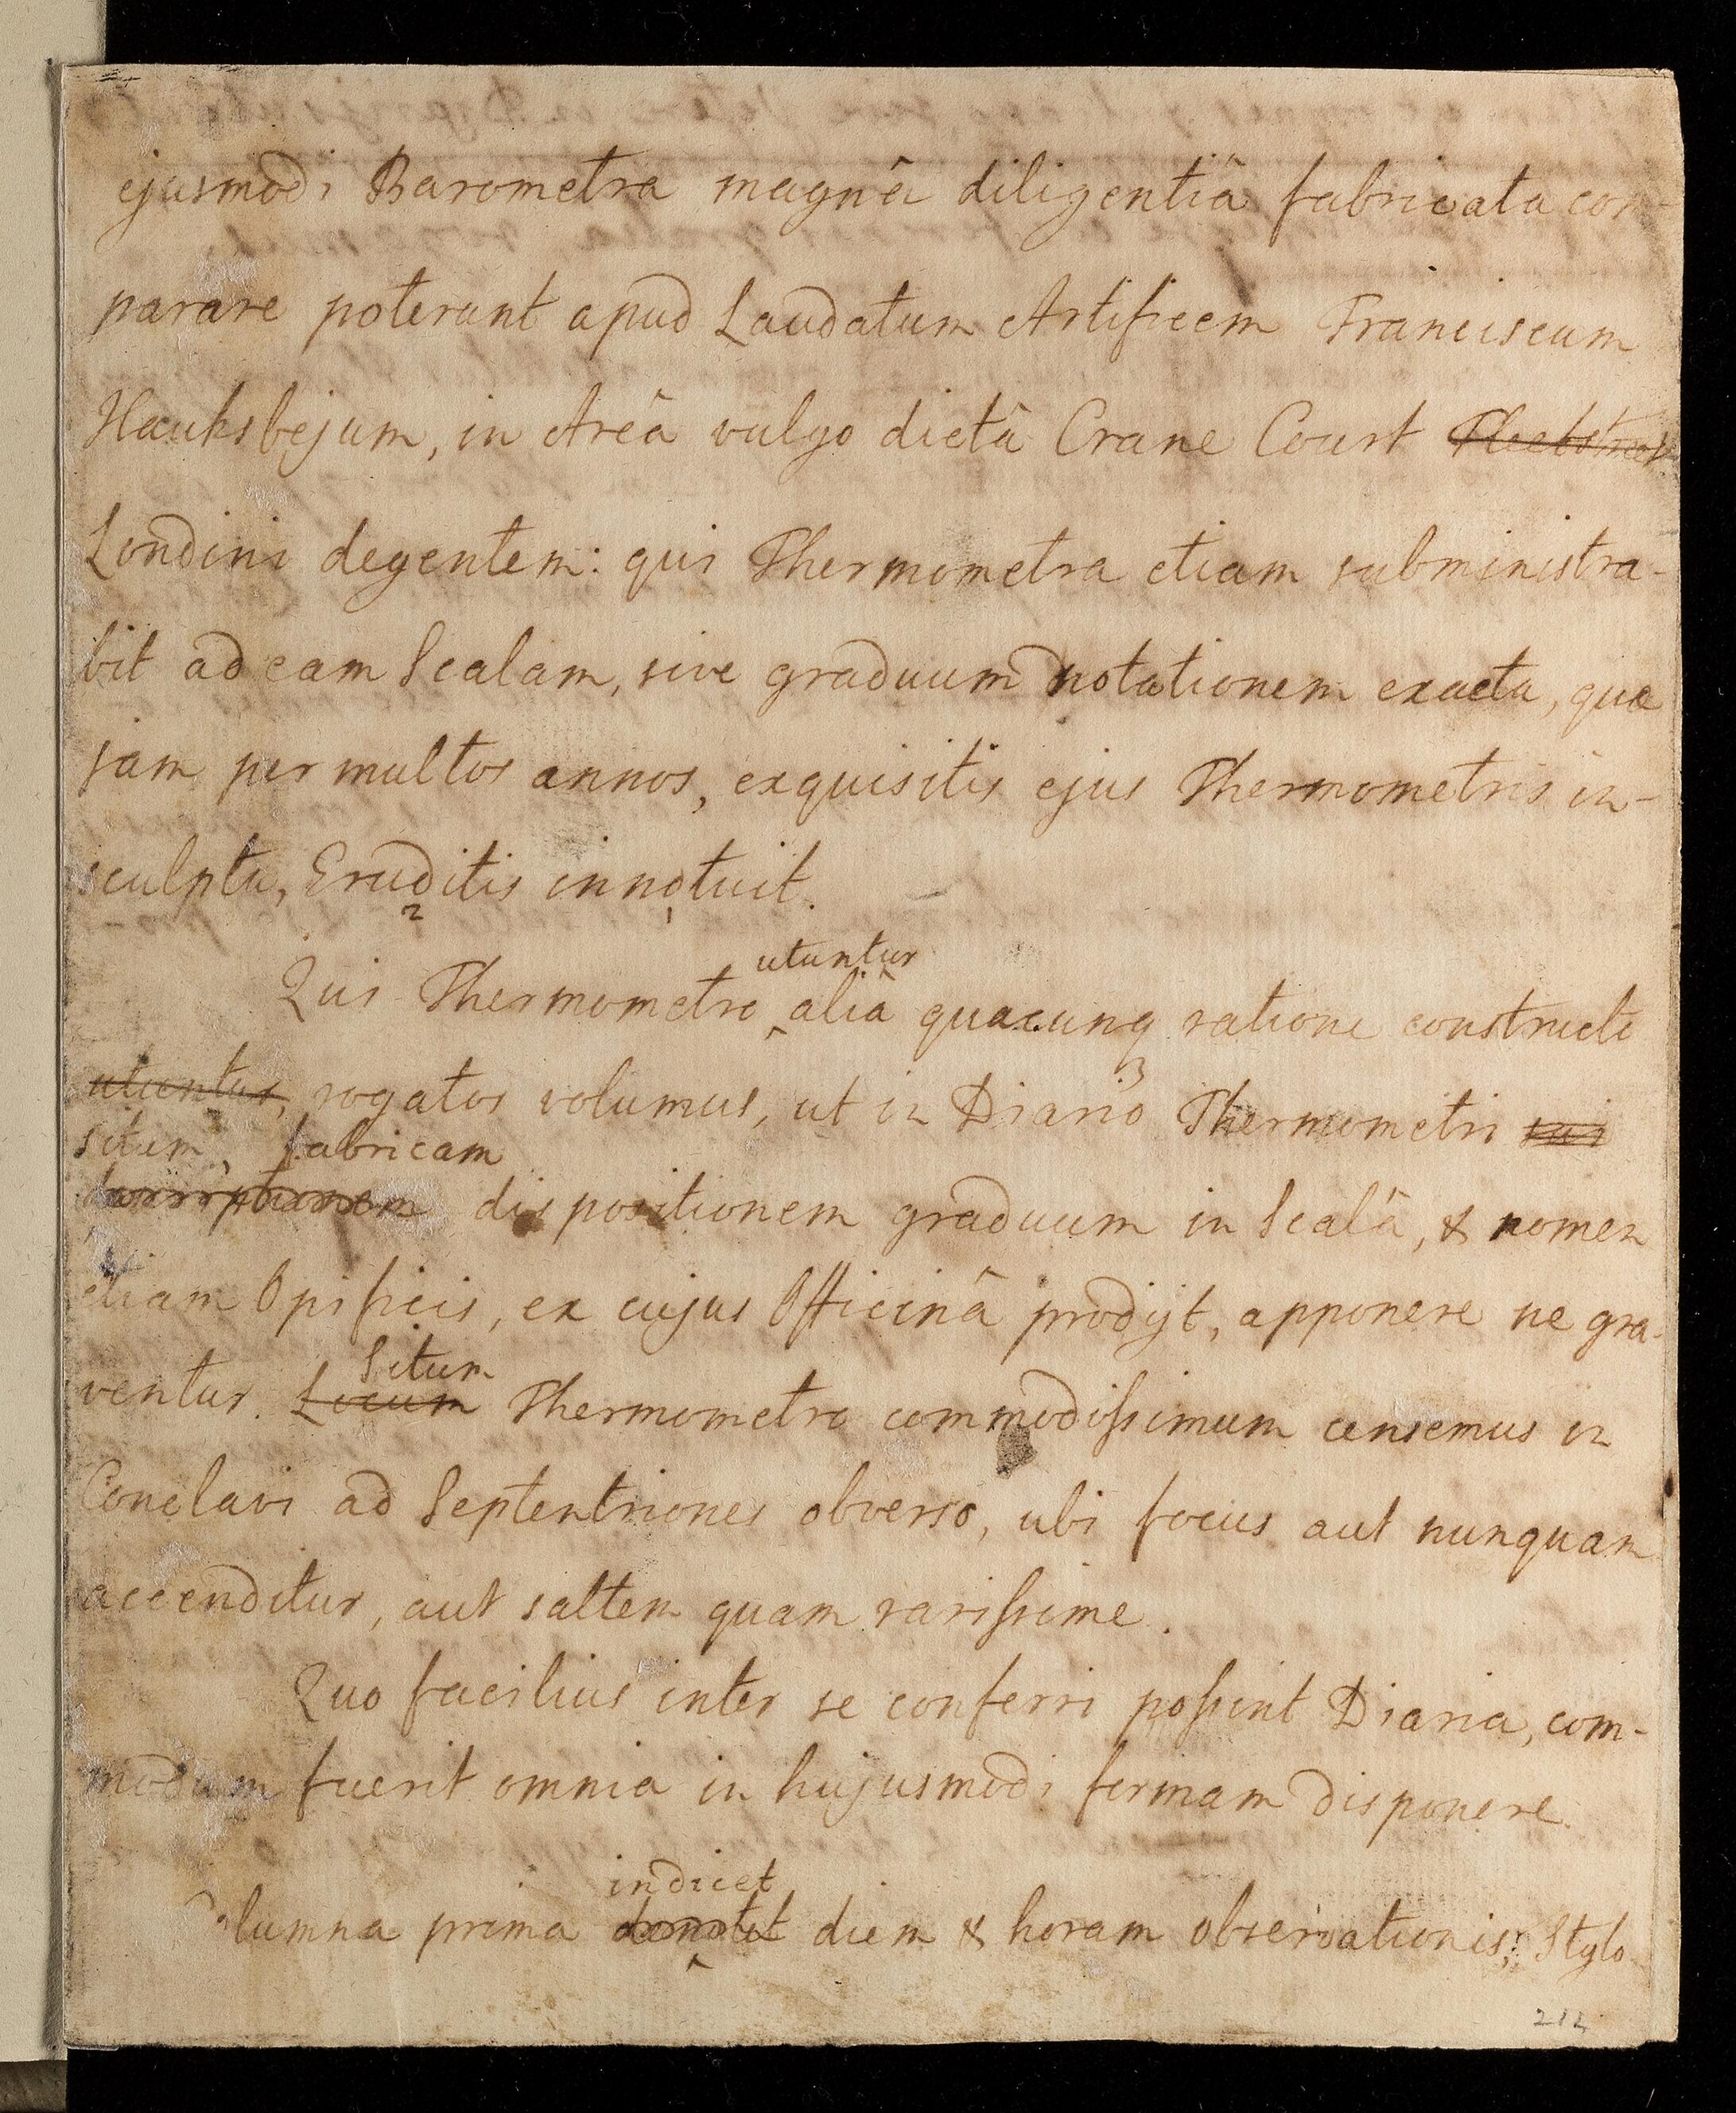 ejusmodi Barometra magnâ diligentiâ fabricata com-
parare poterunt apud Laudatum Artificem Franciscum
Hauksbejum, in Areâ vulgo dictâ Crane Court Fleetstreet
Londini degentem: qui Thermometra etiam subministra-
bit ad eam Scalam, sive graduum notationem exacta, quæ
jam per multos annos, exquisitis ejus Thermometris in-
sculpta, Eruditis innotuit.
2 1
utuntur
Qui Thermometro ‸ aliâ quacunq ratione constructo
3
utuntur, rogatos volumus, ut in Diario Thermometri sui
situm, fabricam
descriptionem dispositionem graduum in Scalâ, & nomen
etiam Opificis, ex cujus Officinâ prodijt, apponere ne gra-
Situm
ventur. Locum Thermometro commodissimum censemus in
Conclavi ad Septentriones obverso, ubi focus aut nunquam
accenditur, aut saltem quam rarissime.
Quo facilius inter se conferri possint Diaria, com-
modum fuerit omnia in hujusmodi formam disponere.
indicet
Columna prima denotet diem & horam observationis; Stylo
212